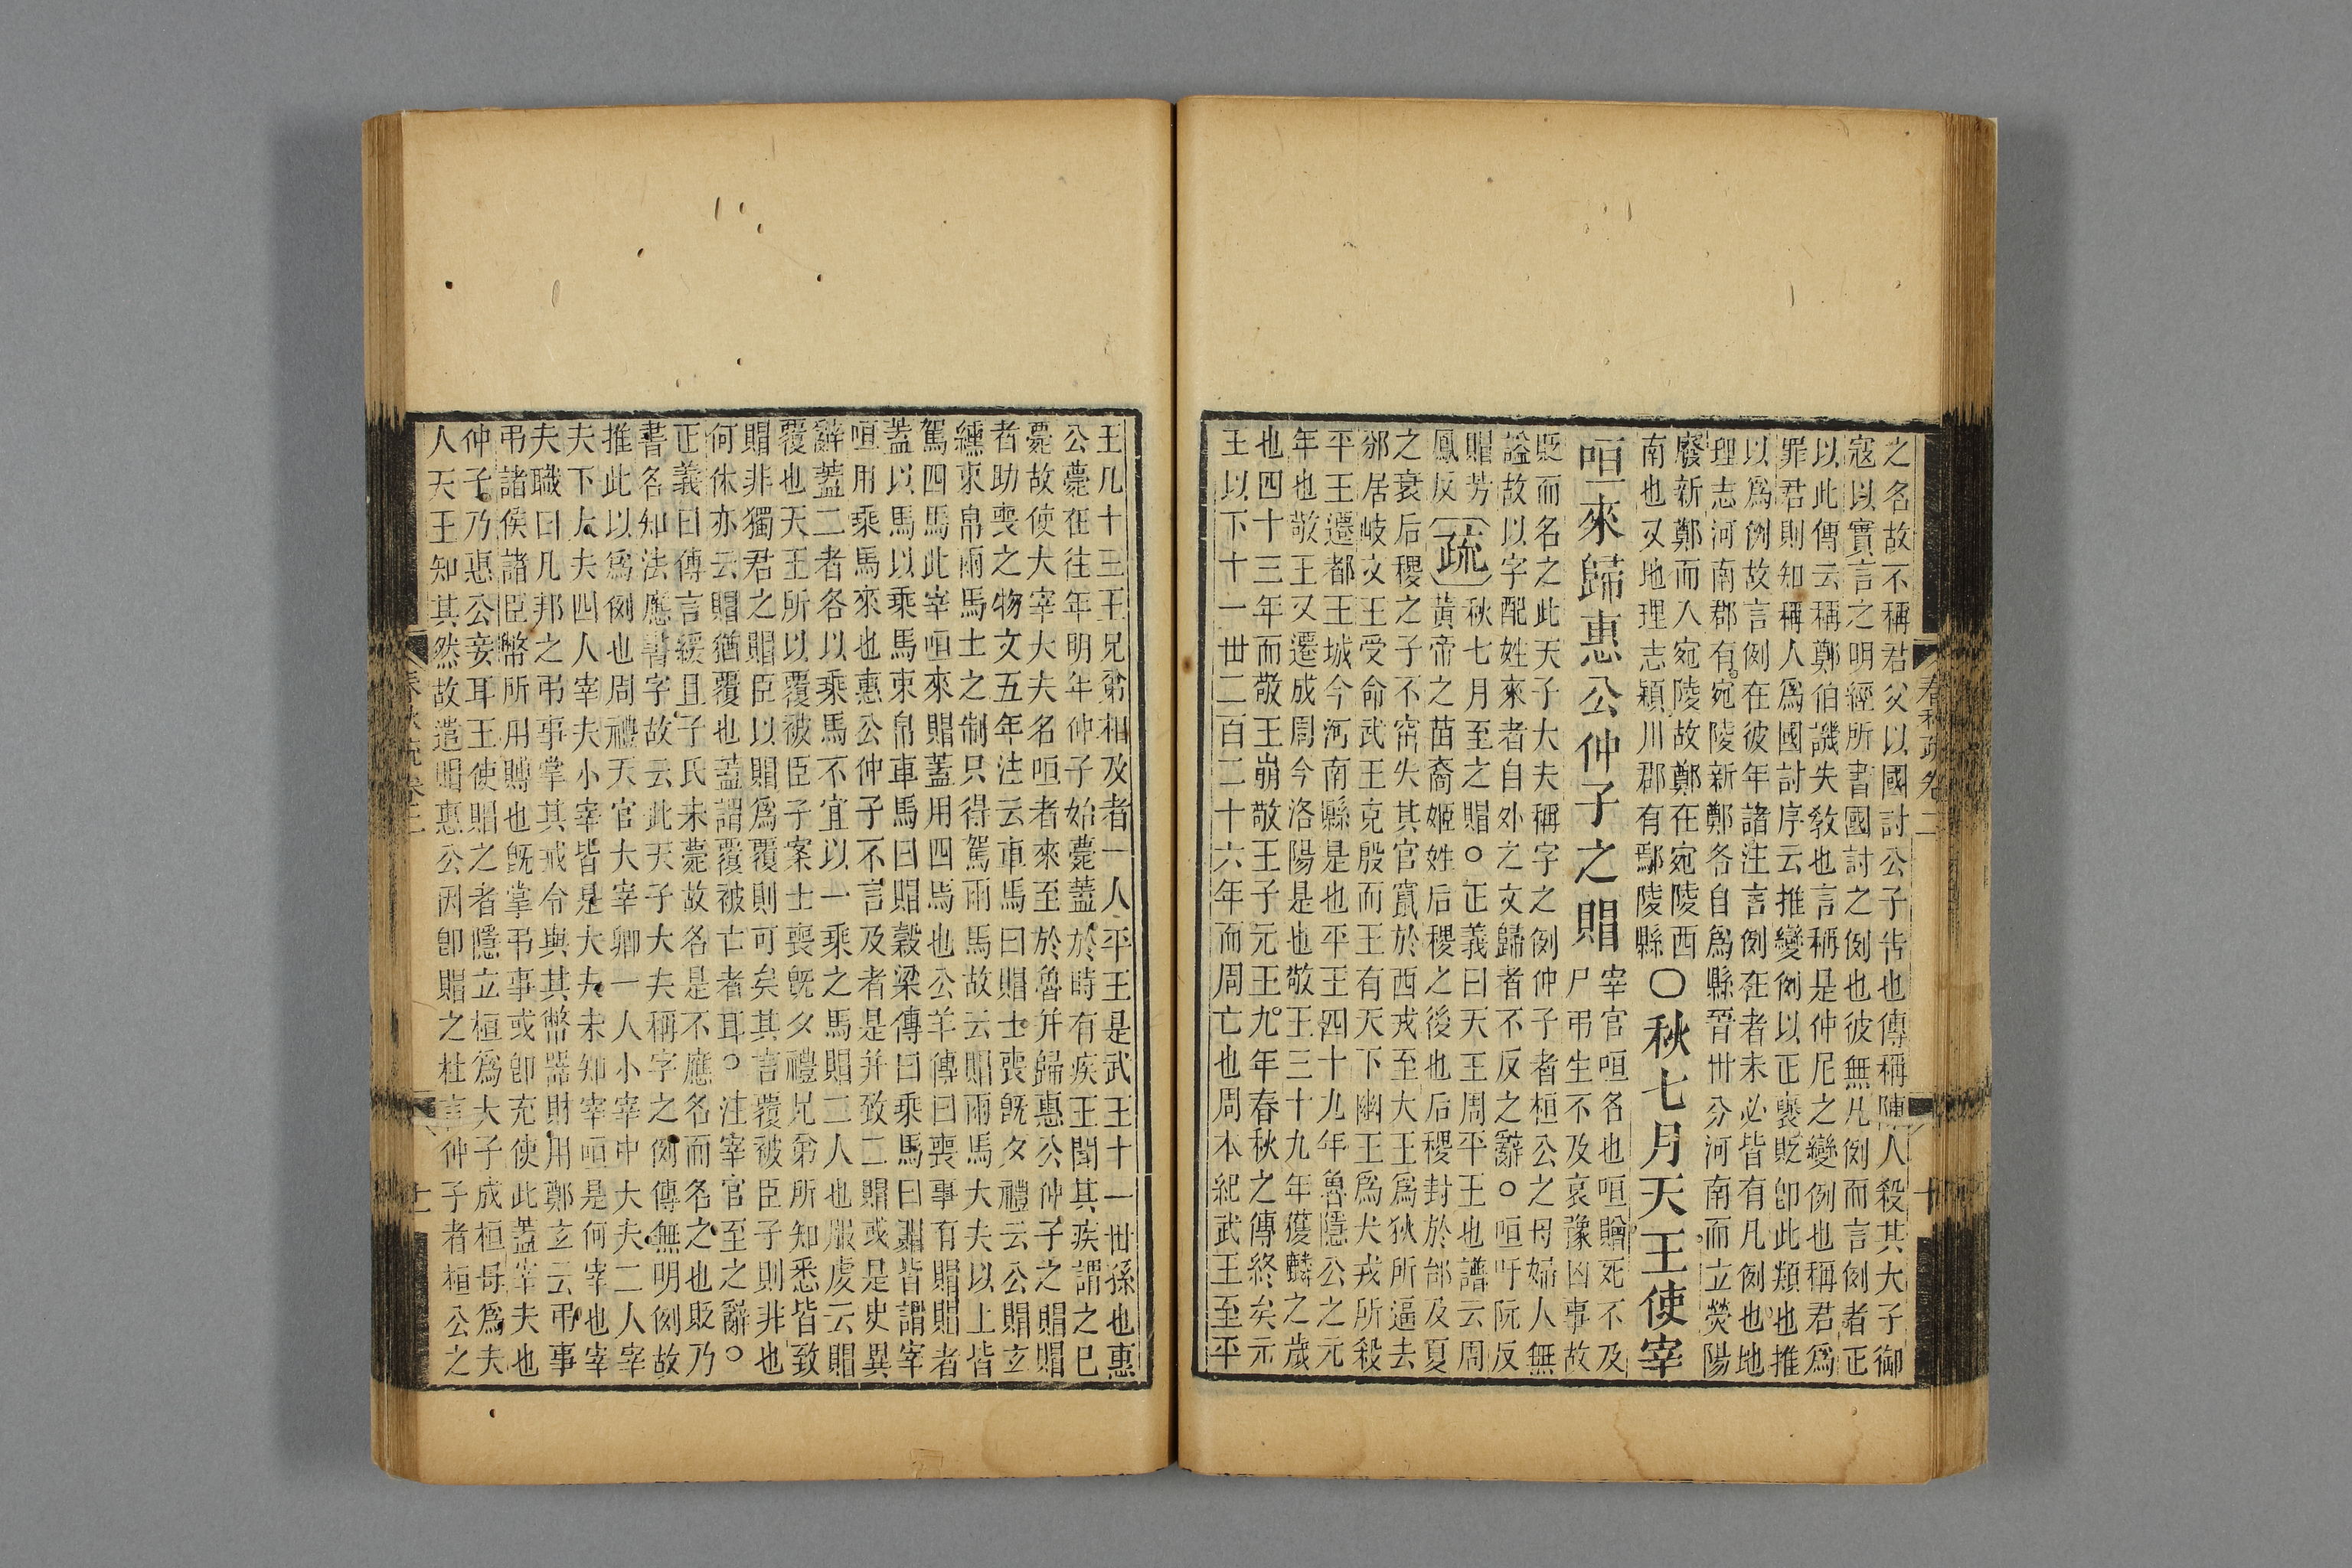 春秋疏卷二
十
之名故不稱君父以國討公子告也傳稱陳人殺其大子御
寇以實言之明經所書國討之例也彼無凡例而言例者正
以此傳云稱鄭伯譏失敎也言稱是仲尼之變例也稱君爲
罪君則知稱人爲國討序云推變例以正襃貶卽此類也推
以爲例故言例在彼年諸注言例在者未必皆有凡例也地
理志河南郡有宛陵新鄭各自爲縣晉世分河南而立熒陽
廢新鄭而入宛陵故鄭在宛陵西
南也又地理志潁川郡有鄢陵縣
○秋七月天王使宰
咺來歸惠公仲子之賵
宰官咺名也咺贈死不及
尸弔生不及哀豫凶事故
貶而名之此天子大夫稱字之例仲子者桓公之母婦人無
諡故以字配姓來者自外之文歸者不反之辭○咺吁阮反
賵芳
鳳反
疏
秋七月至之賵○正義曰天王周平王也譜云周
黃帝之苗裔姬姓后稷之後也后稷封於邰及夏
之衰后稷之子不窋失其官竄於西戎至大王爲狄所逼去
邠居岐文王受命武王克殷而王有天下幽王爲犬戎所殺
平王遷都王城今河南縣是也平王四十九年魯隱公之元
年也敬王又遷成周今洛陽是也敬王三十九年獲麟之歲
也四十三年而敬王崩敬王子元王九年春秋之傳終矣元
王以下十一世二百二十六年而周亡也周本紀武王至平
王凡十三王兄弟相及者一人平王是武王十一世孫也惠
公薨在往年明年仲子始薨蓋於時有疾王聞其疾謂之已
薨故使大宰大夫名咺者來至於魯并歸惠公仲子之賵賵
者助喪之物文五年注云車馬曰賵士喪旣夕禮云公賵玄
纁束帛兩馬士之制只得駕兩馬故云賵兩馬大夫以上皆
駕四馬此宰咺來賵蓋用四馬也公羊傳曰喪事有賵賵者
蓋以馬以乘馬束帛車馬曰賵穀梁傳曰乘馬曰賵皆謂宰
咺用乘馬來也惠公仲子不言及者是并致二賵或是史異
辭蓋二者各以乘馬不宜以一乘之馬賵二人也服虔云賵
覆也天王所以覆被臣子案士喪旣夕禮兄弟所知悉皆致
賵非獨君之賵臣以賵爲覆則可矣其言覆被臣子則非也
何休亦云賵猶覆也蓋謂覆被亡者耳○注宰官至之辭○
正義曰傳言緩且子氏未薨故名是不應名而名之也貶乃
書名知法應書字故云此天子大夫稱字之例傳無明例故
推此以爲例也周禮天官大宰卿一人小宰中大夫二人宰
夫下大夫四人宰夫小宰皆是大夫未知宰咺是何宰也宰
夫職曰凡邦之弔事掌其戒令與其幣器財用鄭玄云弔事
弔諸侯諸臣幣所用賻也旣掌弔事或卽充使此蓋宰夫也
仲子乃惠公妾耳王使賵之者隱立桓爲大子成桓母爲夫
人天王知其然故遣賵惠公因卽賵之杜言仲子者桓公之